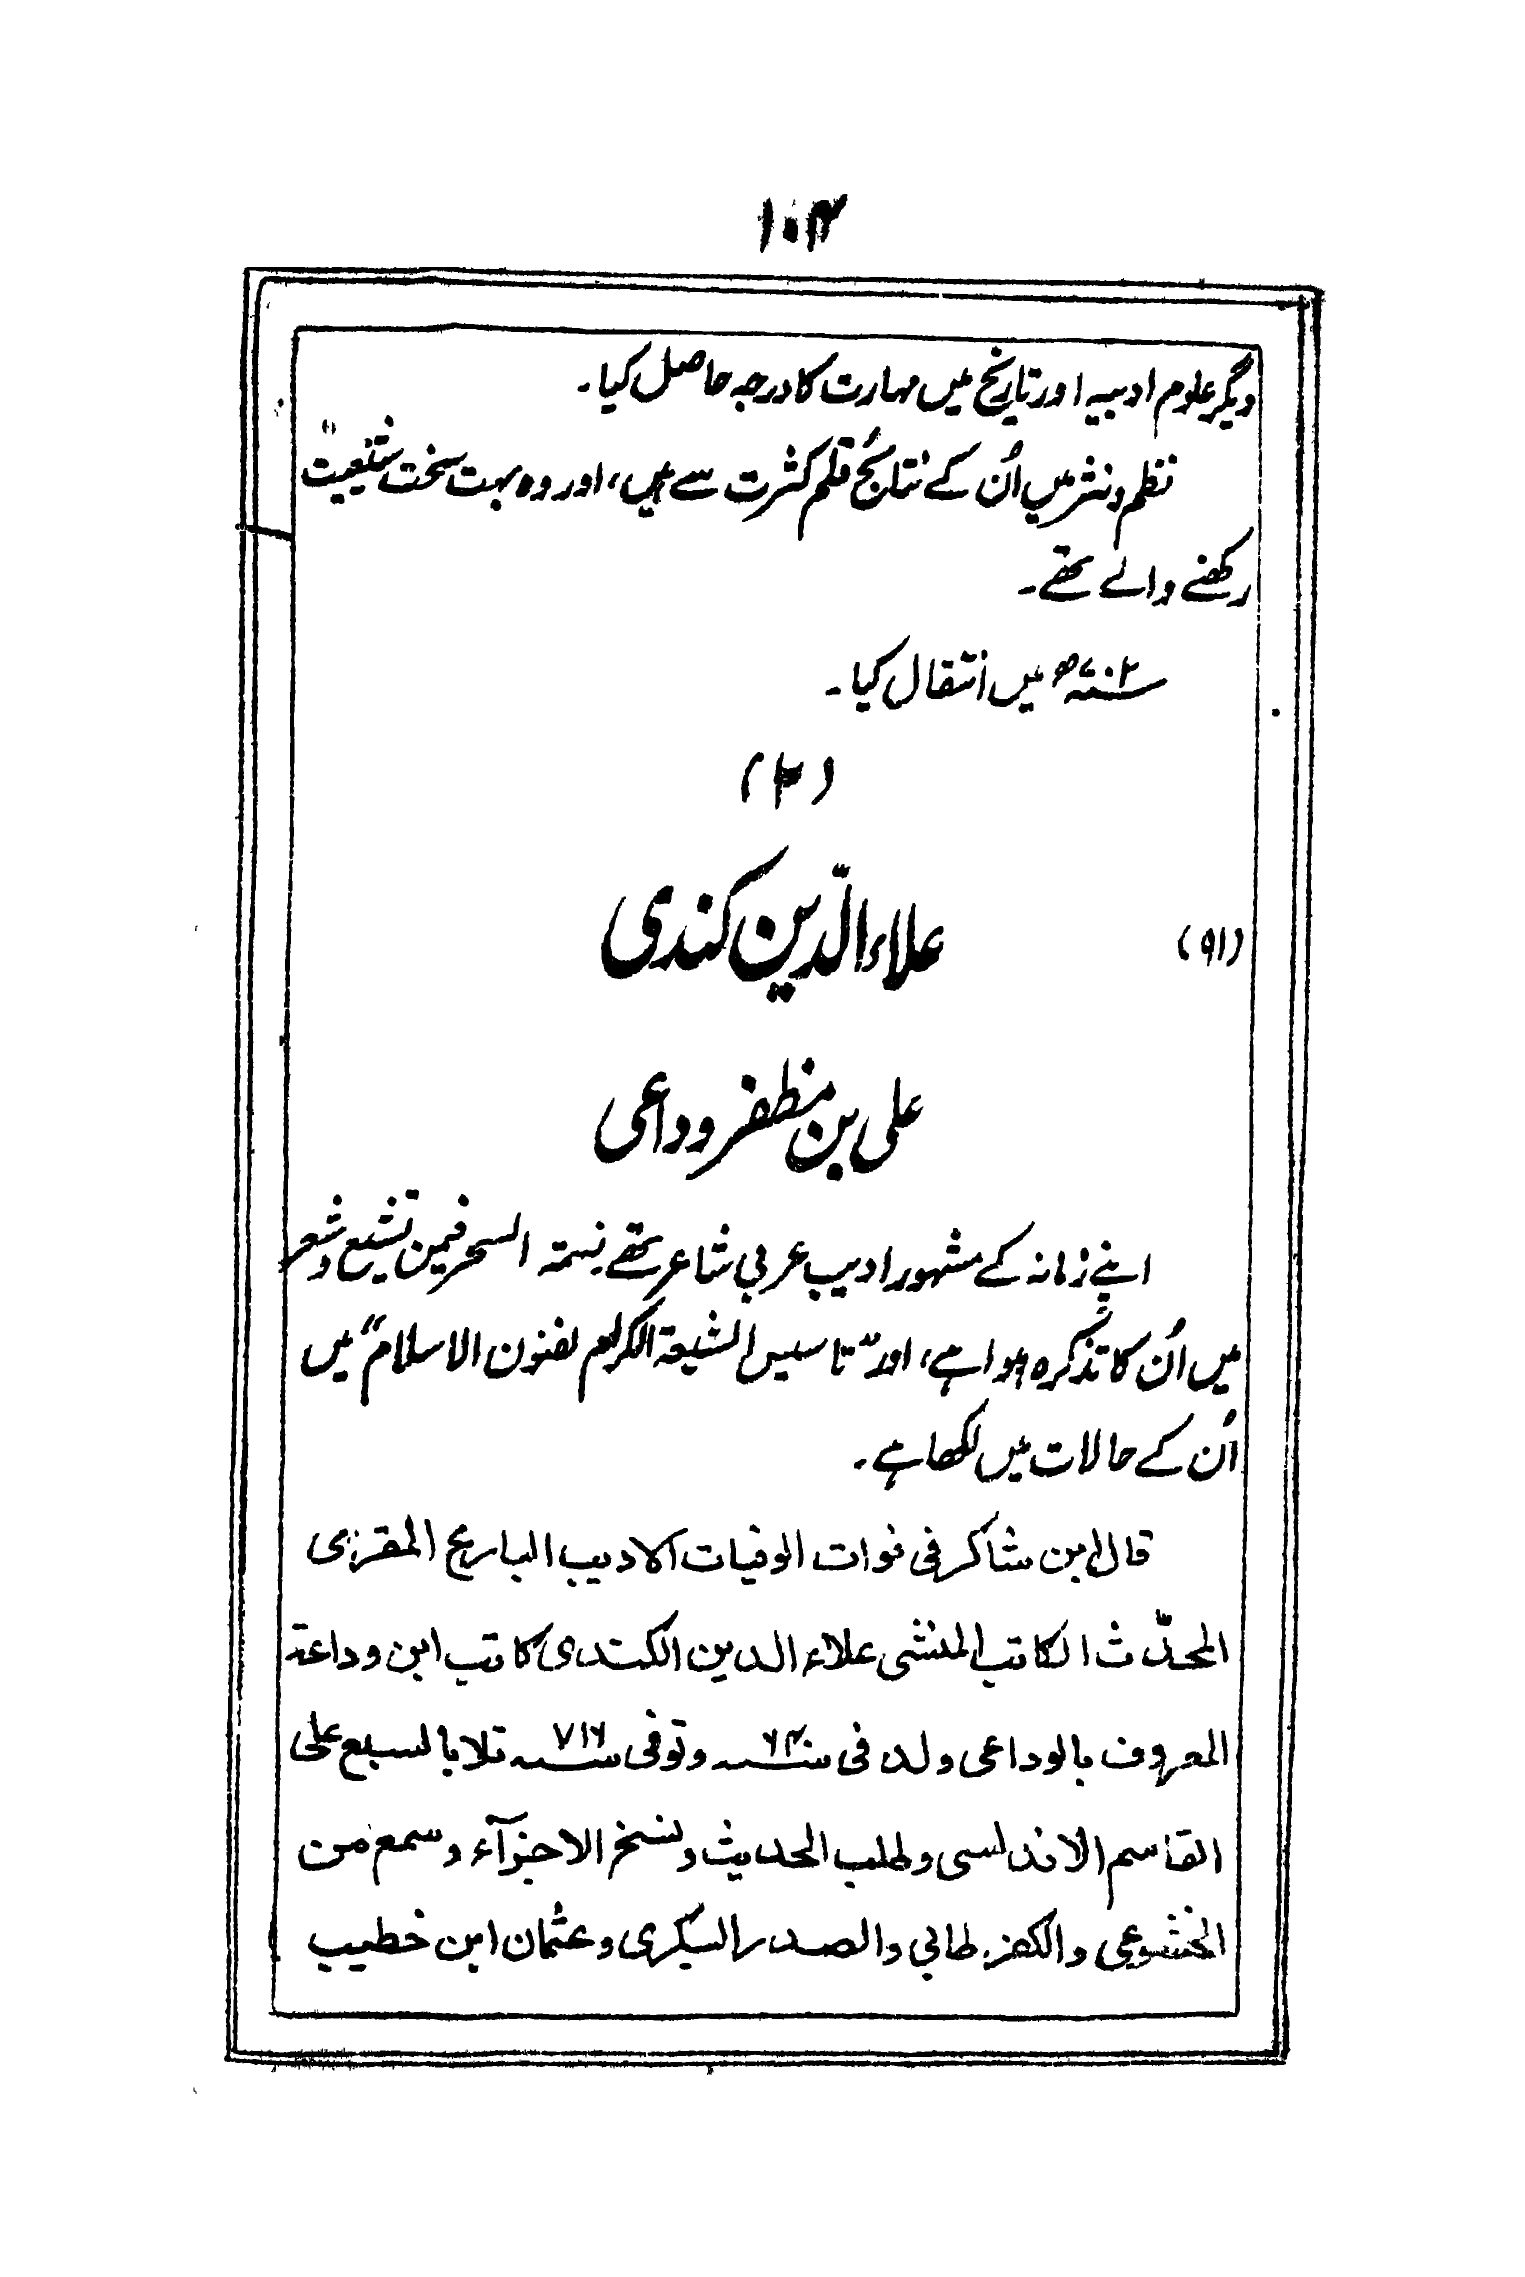 ۱۰۴
دیگر علوم ادبیہ اور تاریخ میں مہارت کا درجہ حاصل کیا۔
نظم و نثر میں اُن کے نتائج قلم کثرت سے ہیں، اور وہ بہت سخت شیعیت
رکھنے والے تھے۔
میں انتقال کیا۔
(۳)
(۹۱) علاء الدّین کندی
علی بن مظفر وداعی
اپنے زمانہ کے مشہور ادیب عربی شاعر تھے نسمتہ السحر فیمن تشیع و شعر
میں اُن کا تذکرہ ہوا ہے، اور ”تاسیس الشیعۃ الکرام لفنون الاسلام“ میں
اُن کے حالات میں لکھا ہے۔
قال ابن شاکر فی فوات الوفیات الادیب البارع المقری
المحدّث الکاتب المنشی علاء الدین الکندی کاتب ابن وداعۃ
المعروف بالوداعی ولد فی سنہ ۶۴۰ وتوفی سنہ ۷۱۶ تلا بالسبع علی
القاسم الاندلسی وطلب الحدیث ونسخ الاجزآء وسمع من
الخشوعی والکفرطابی والصدر البکری وعثمان ابن خطیب